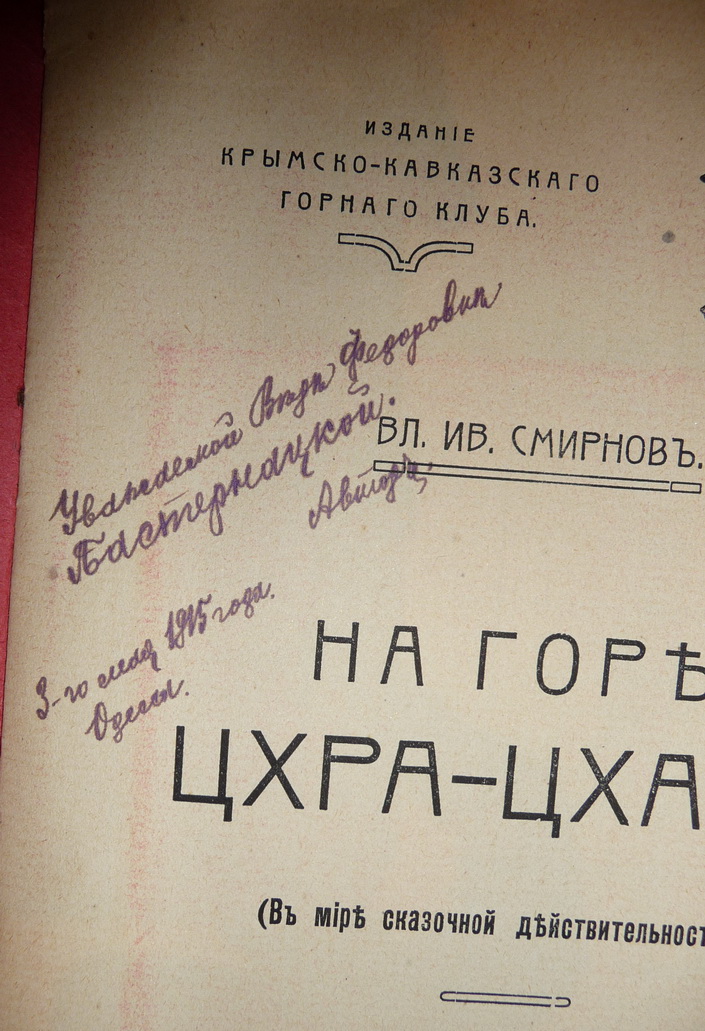 ИЗДАНІЕ
КРЫМСКО-КАВКАЗСКАГО
ГОРНАГО КЛУБА.
Уважаемой Вѣрѣ Федоровнѣ
Пастернацкой.
Авторъ.
3-го мая 1915 года.
Одесса.
ВЛ. ИВ. СМИРНОВЪ.
НА ГОРѢ
ЦХРА-ЦХА
(Въ мірѣ сказочной дѣйствительност